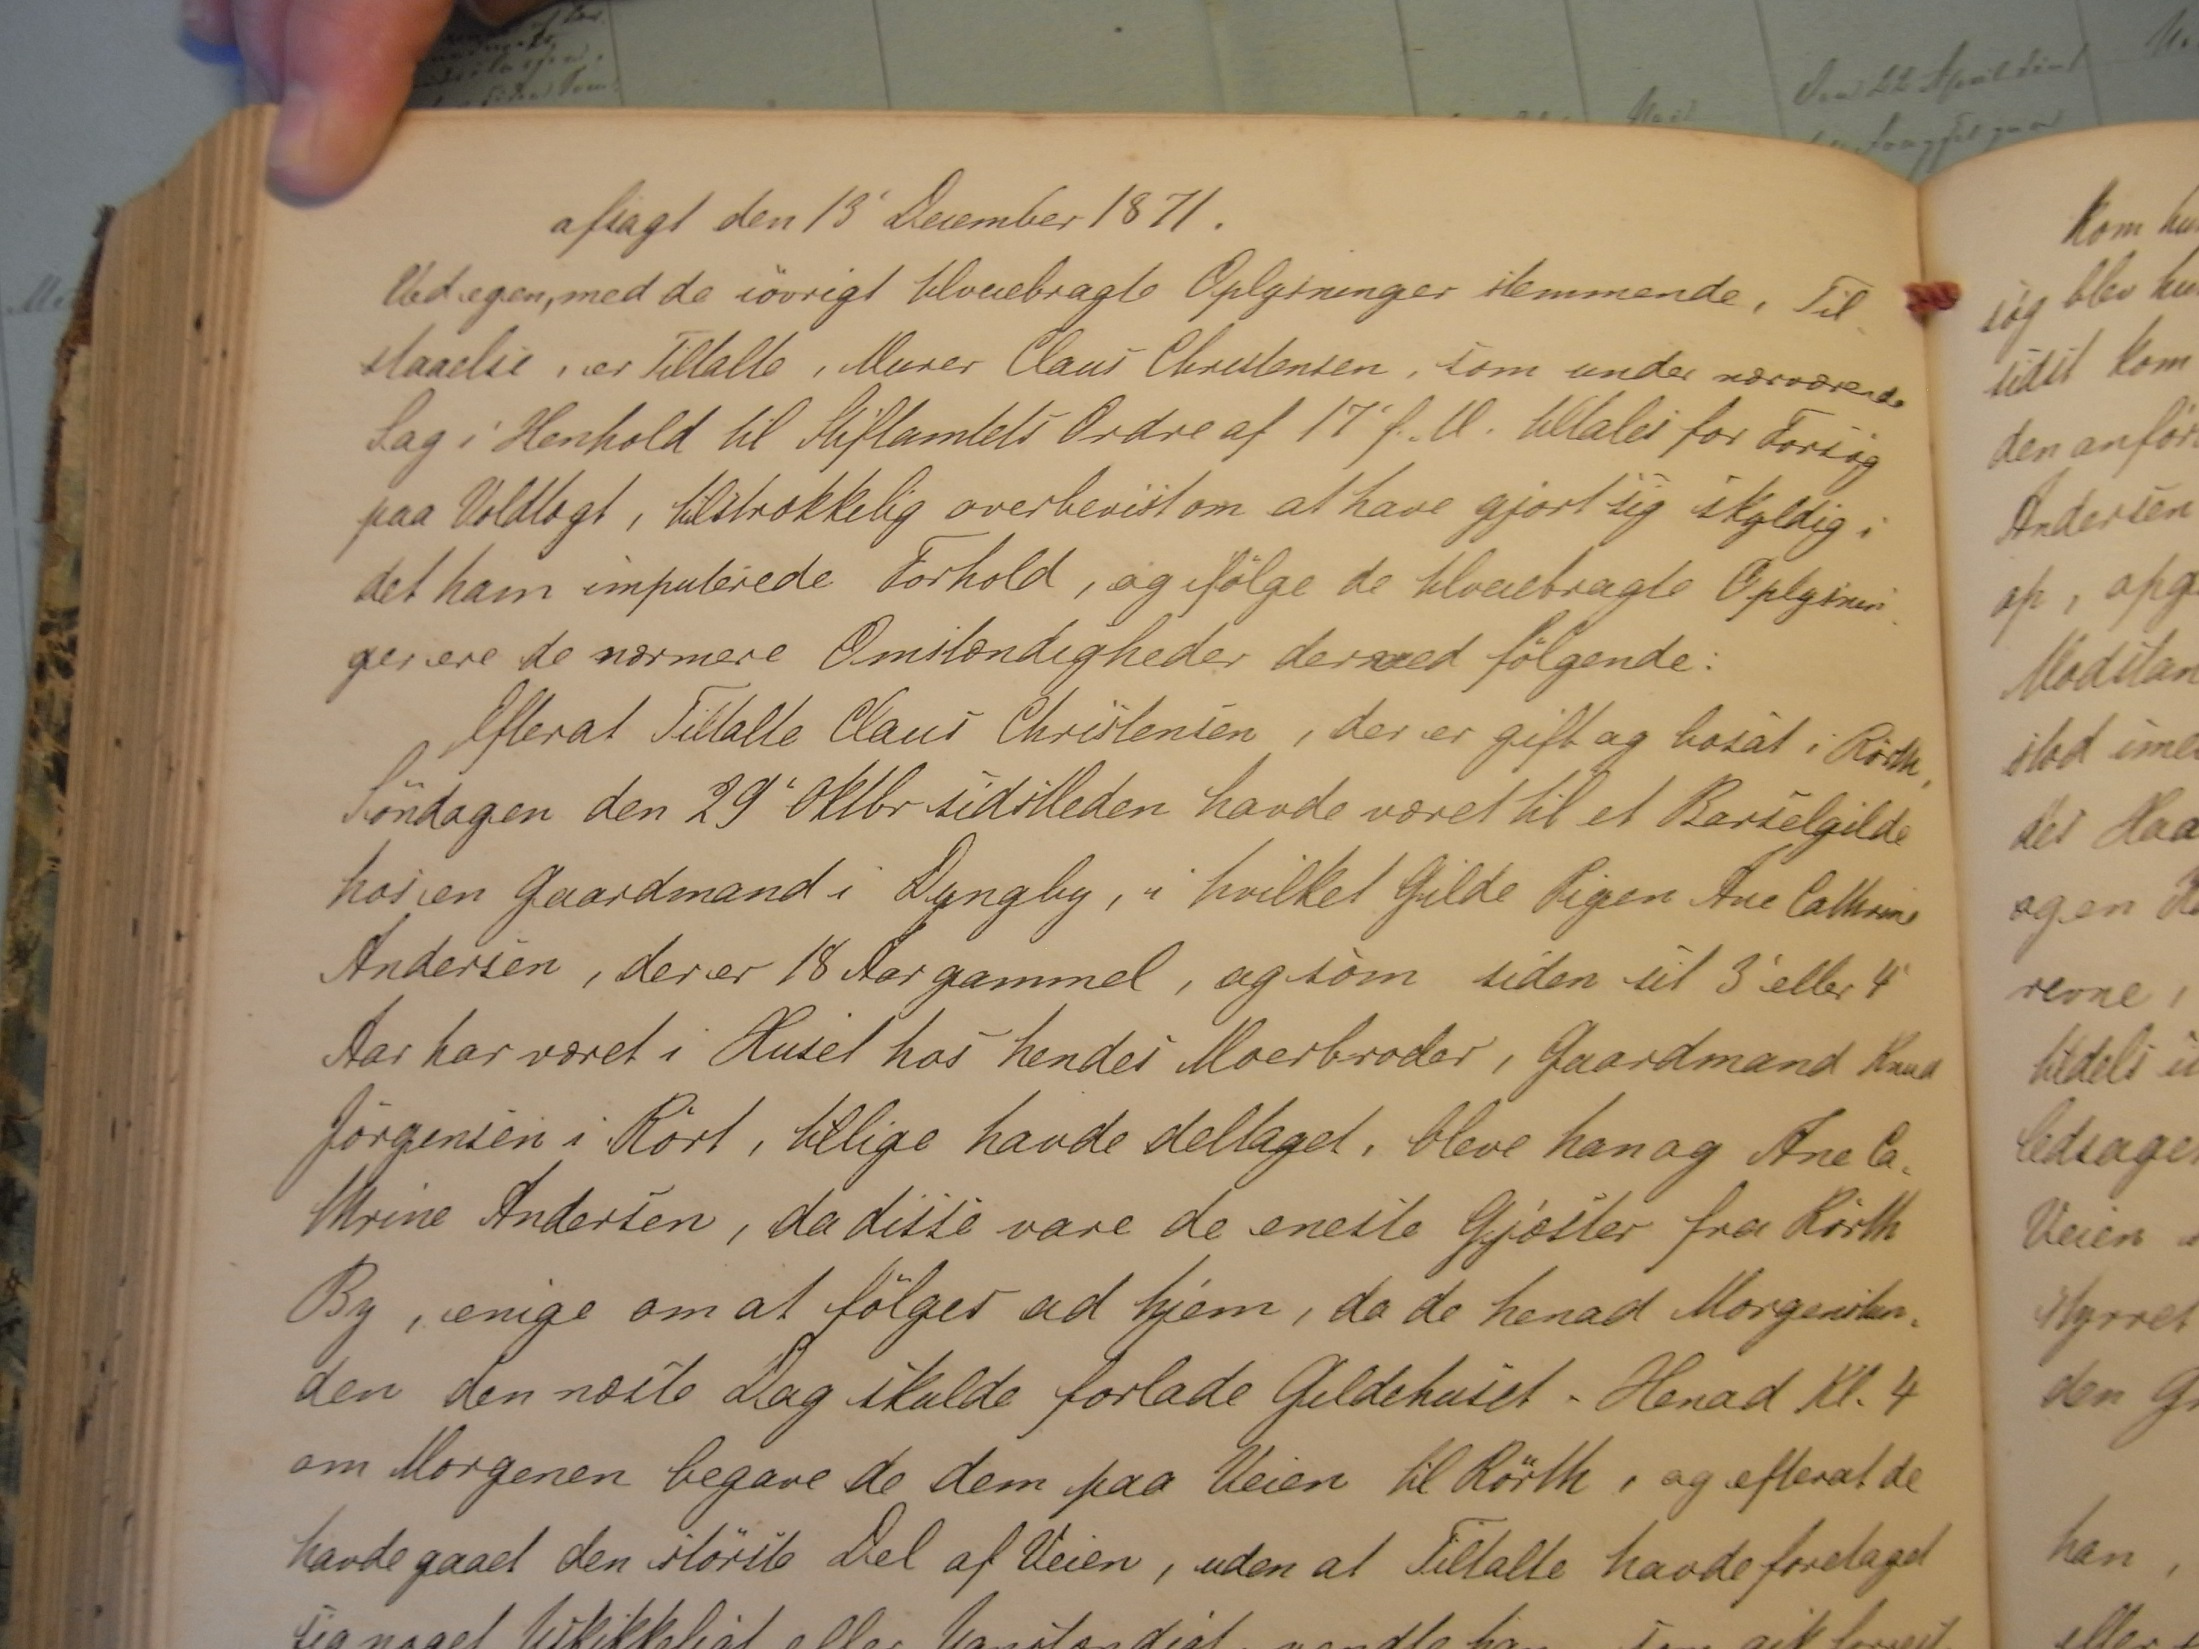 afsagt den 13' December 1871.
Ved egen, med de iøvrigt tilveiebragte Oplysninger stemmende, Til-
staaelse, er Tiltalte, Murer Claus Christensen, som under nærværende
Sag i Henhold til Stiftamtets Ordre af 17' f. M. tiltales for Forsøg
paa Voldtægt, tilstrækkelig overbevist om at have gjort sig skyldig i
det ham imputerede Forhold, og ifølge de tilveiebragte Oplysnin-
ger ere de nærmere Omstændigheder derved følgende:
Efterat Tiltalte Claus Christensen, der er gift og bosat i Rörth,
Söndagen den 29' Oktbr sidstleden havde været til et Barselgilde
hos en Gaardmand i Dyngby, i hvilket Gilde Pigen Ane Cathrine
Andersen, der er 18 Aar gammel, og som siden sit 3' eller 4'
Aar har været i Huset hos hendes Moerbroder, Gaardmand Knud
Jörgensen i Rört, tillige havde deltaget, bleve han og Ane Ca-
thrine Andersen, da disse vare de eneste Gjæster fra Rörth
By, enige om at fölges ad hjem, da de henad Morgenstun-
den den næste Dag skulde forlade Gildehuset - Henad Kl. 4
om Morgenen begave de dem paa Veien til Rörth, og efterat de
havde gaaet den störste Del af Veien, uden at Tiltalte havde foretaget
sig noget Uskikkeligt eller Uanstændigt, vendte han, som gik
Kom
søg blev
sidst kom
den anför
Andersen
op, opg
Modstan
stod ime
des Haa
og en
revne,
tildels
ledsage
Veien
Styrret
den
han,
eller